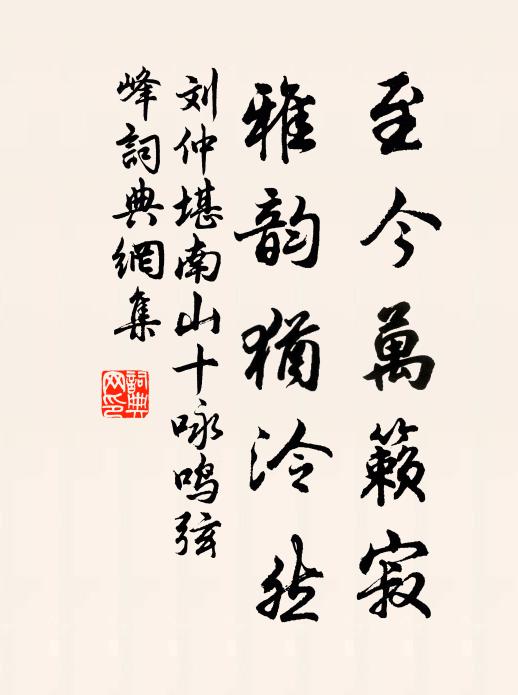 至今萬籁寂
雅韵猶泠然
刘仲堪南山十咏鸣弦
峰詞典網集
詞典网印